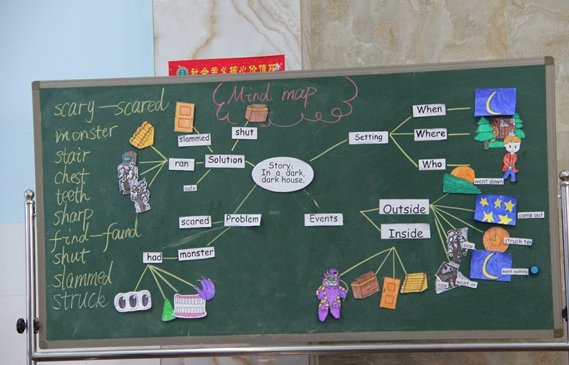 社会主义核心价值观
Mind map
scary—scared
monster
stair
chest
teeth
sharp
find—found
shut
slammed
struck
slammed
shut
ran
Solution
safe
Story:
In a dark,
dark house.
Setting
When
Where
Who
scared
Problem
had
monster
Events
Outside
Inside
went down
came out
struck ten
went walking
saw
went in